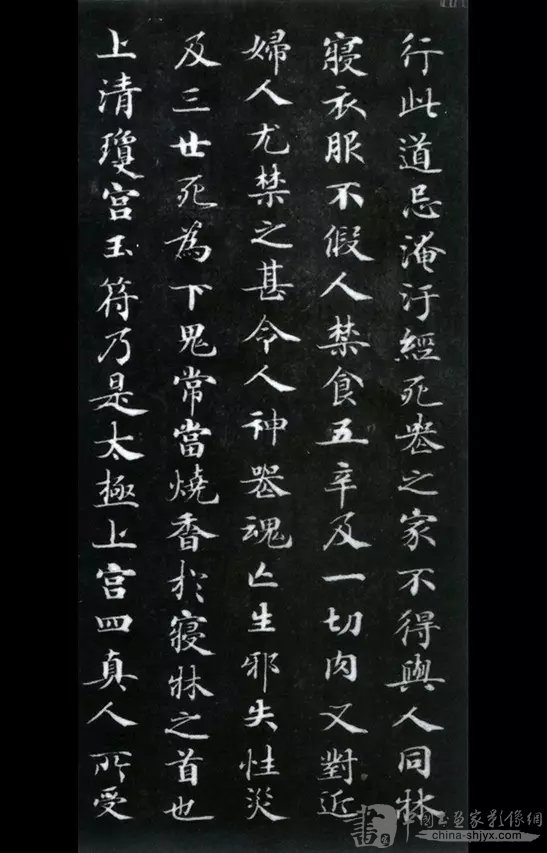 行此道忌淹汙經死喪之家不得與人同牀
寢衣服不假人禁食五辛及一切肉又對近
婦人尤禁之甚令人神喪魂亡生邪失性災
及三世死為下鬼常當燒香於寢牀之首也
上清瓊宮玉符乃是太極上宮四真人所受
書 中國書畫家影像網
china-shjyx.com